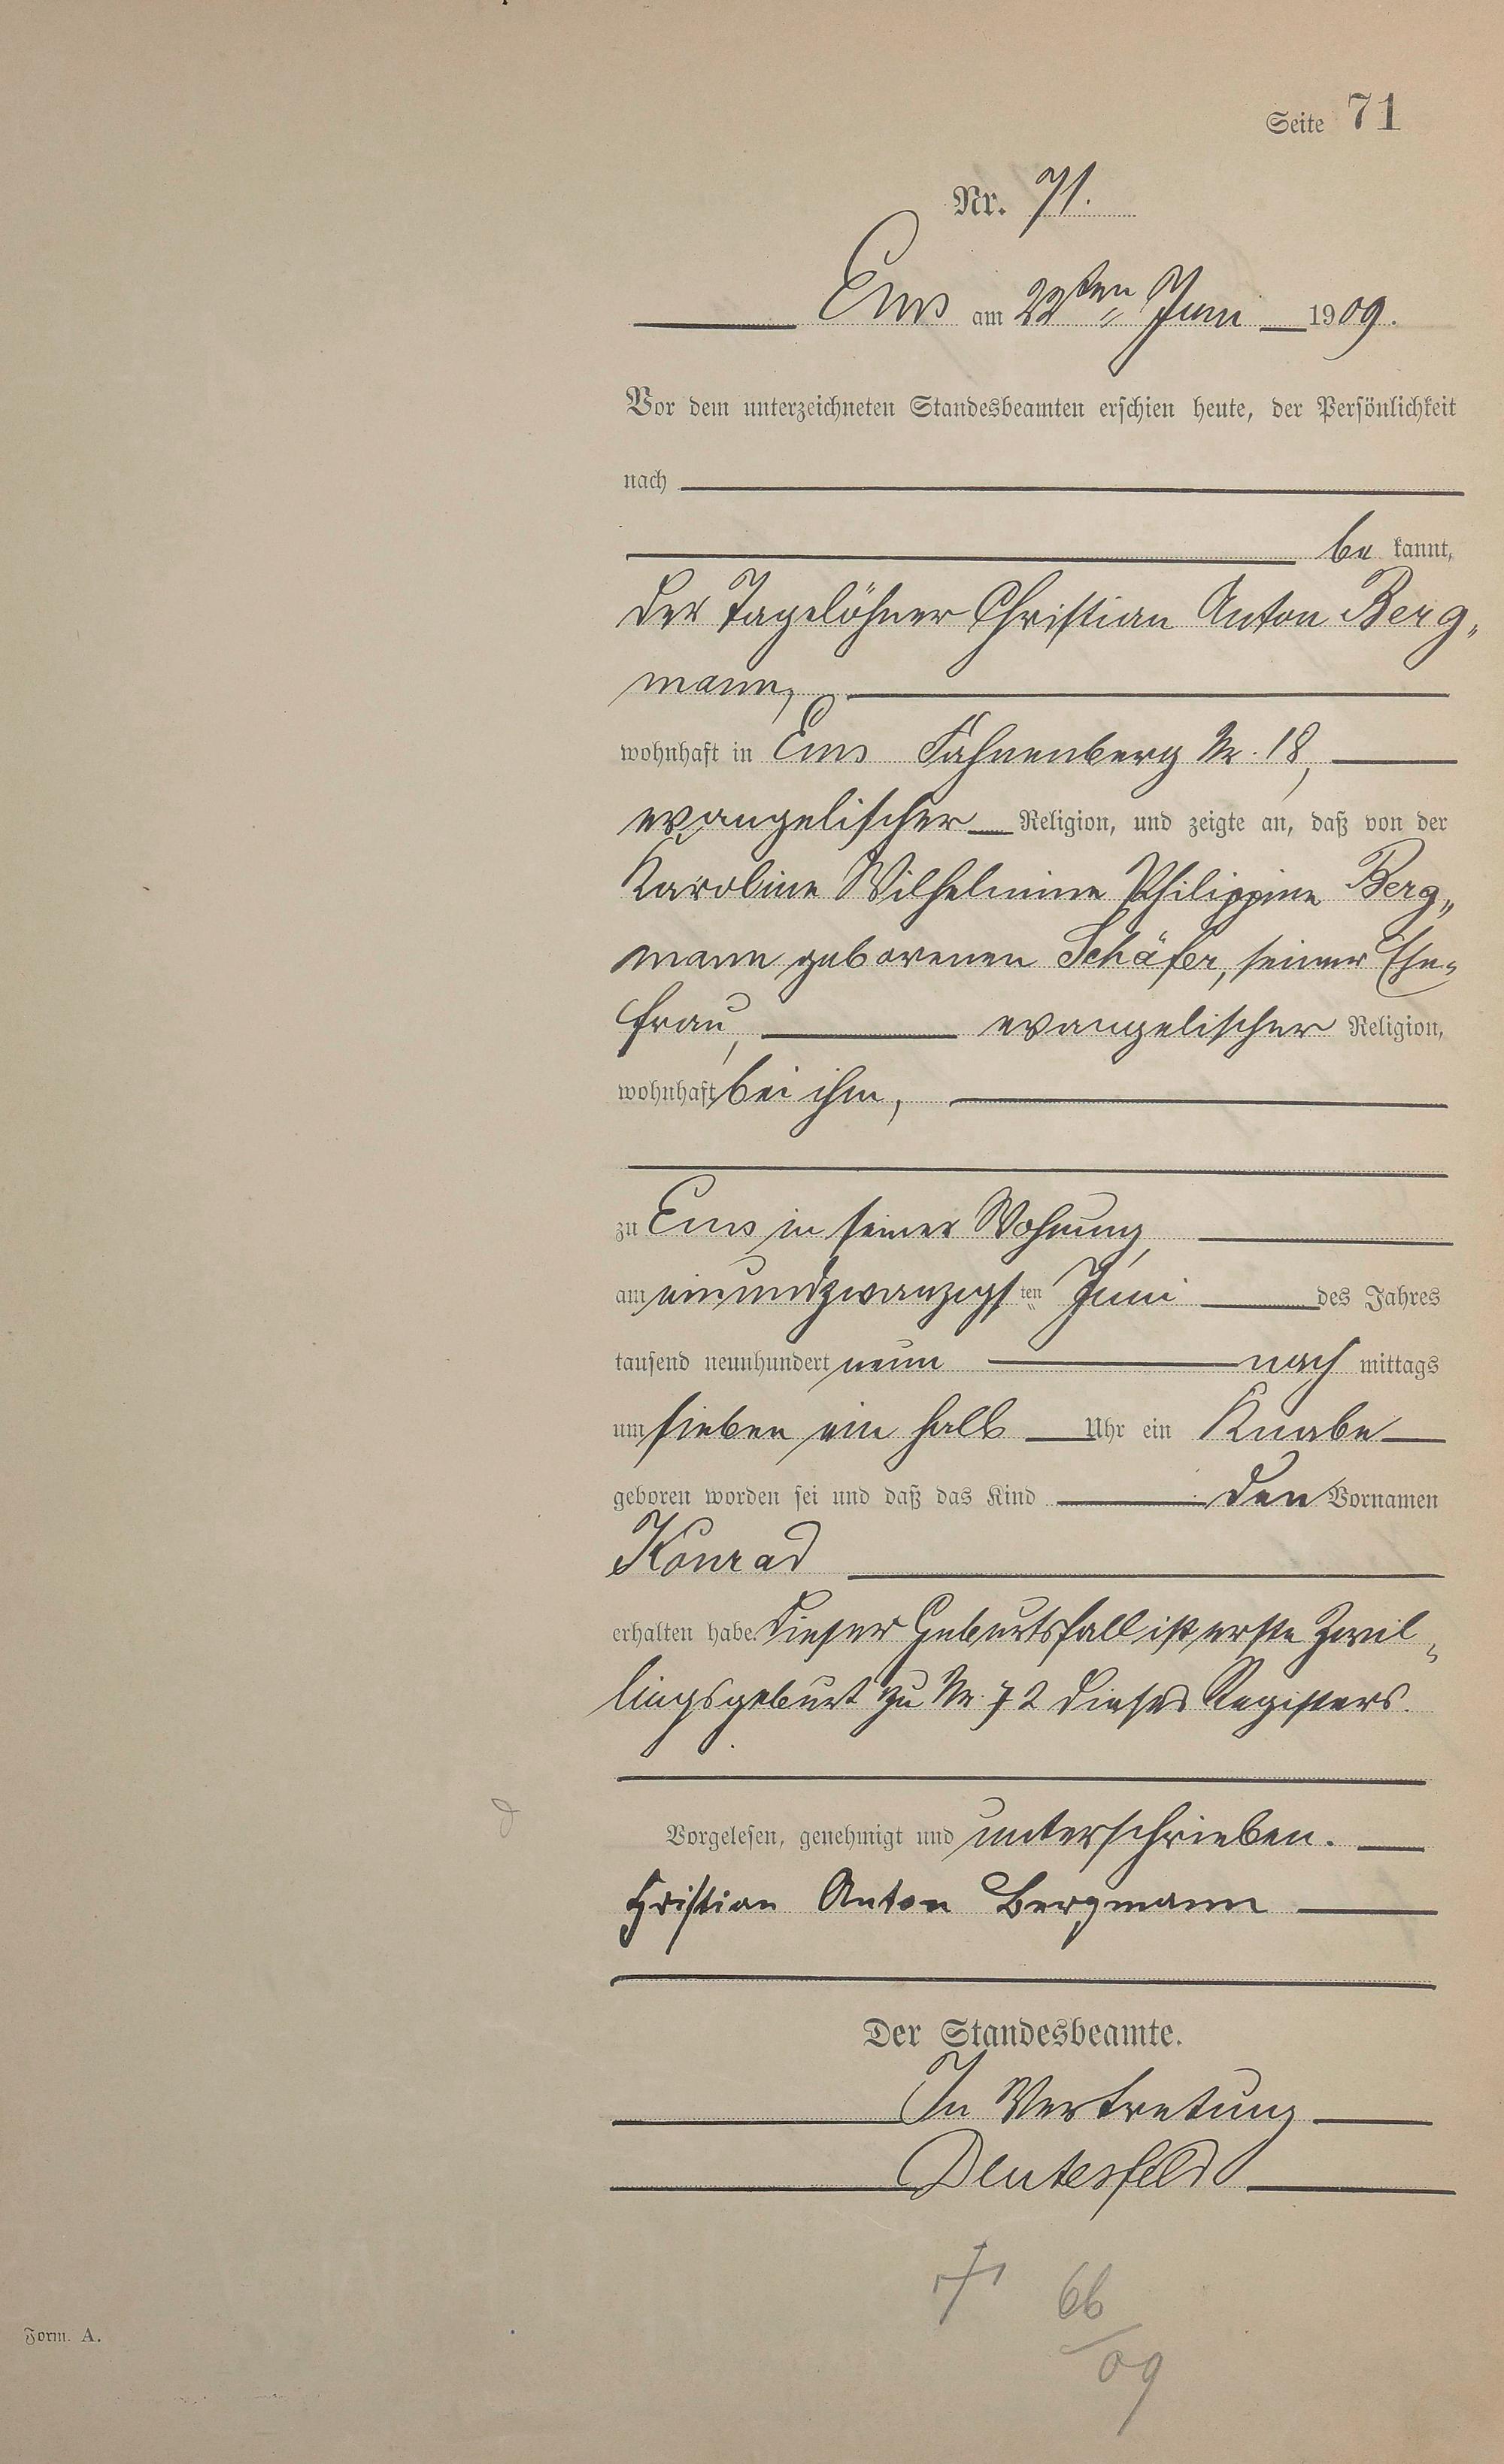 Seite 71
Nr. 71.
Ems am 22ten Juni 1909.
Vor dem unterzeichneten Standesbeamten erschien heute, der Persönlichkeit
nach
be kannt,
der Tagelöhner Christian Anton Berg„
mann,
wohnhaft in Ems Fahnenberg Nr. 18,
evangelischer Religion, und zeigte an, daß von der
Karoline Wilhelmine Philippine Berg„
mann geborenen Schäfer, seiner Ehe„
frau, evangelischer Religion,
wohnhaft bei ihm,
zu Ems in seiner Wohnung,
am einundzwanzigsten Juni des Jahres
tausend neunhundert neun nach mittags
um sieben ein halb Uhr ein Knabe
geboren worden sei und daß das Kind den Vornamen
Konrad
erhalten habe. Dieser Geburtsfall ist erste Zwil„
lingsgeburt zu Nr. 72 dieses Registers.
Vorgelesen, genehmigt und unterschrieben.
Christian Anton Bergmann
Der Standesbeamte.
In Vertretung
66
09
Form. A.